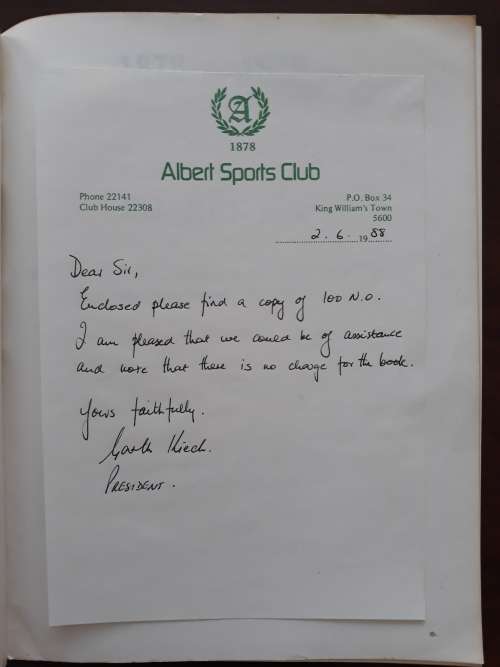 A
1878
Albert Sports Club
Phone 22141
Club House 22308
P.O. Box 34
King William's Town
5600
2. 6. 1988
Dear Sir,
Enclosed please find a copy of 100 N.O.
I am pleased that we could be of assistance
and note that there is no charge for the book.
Yours faithfully.
PRESIDENT.